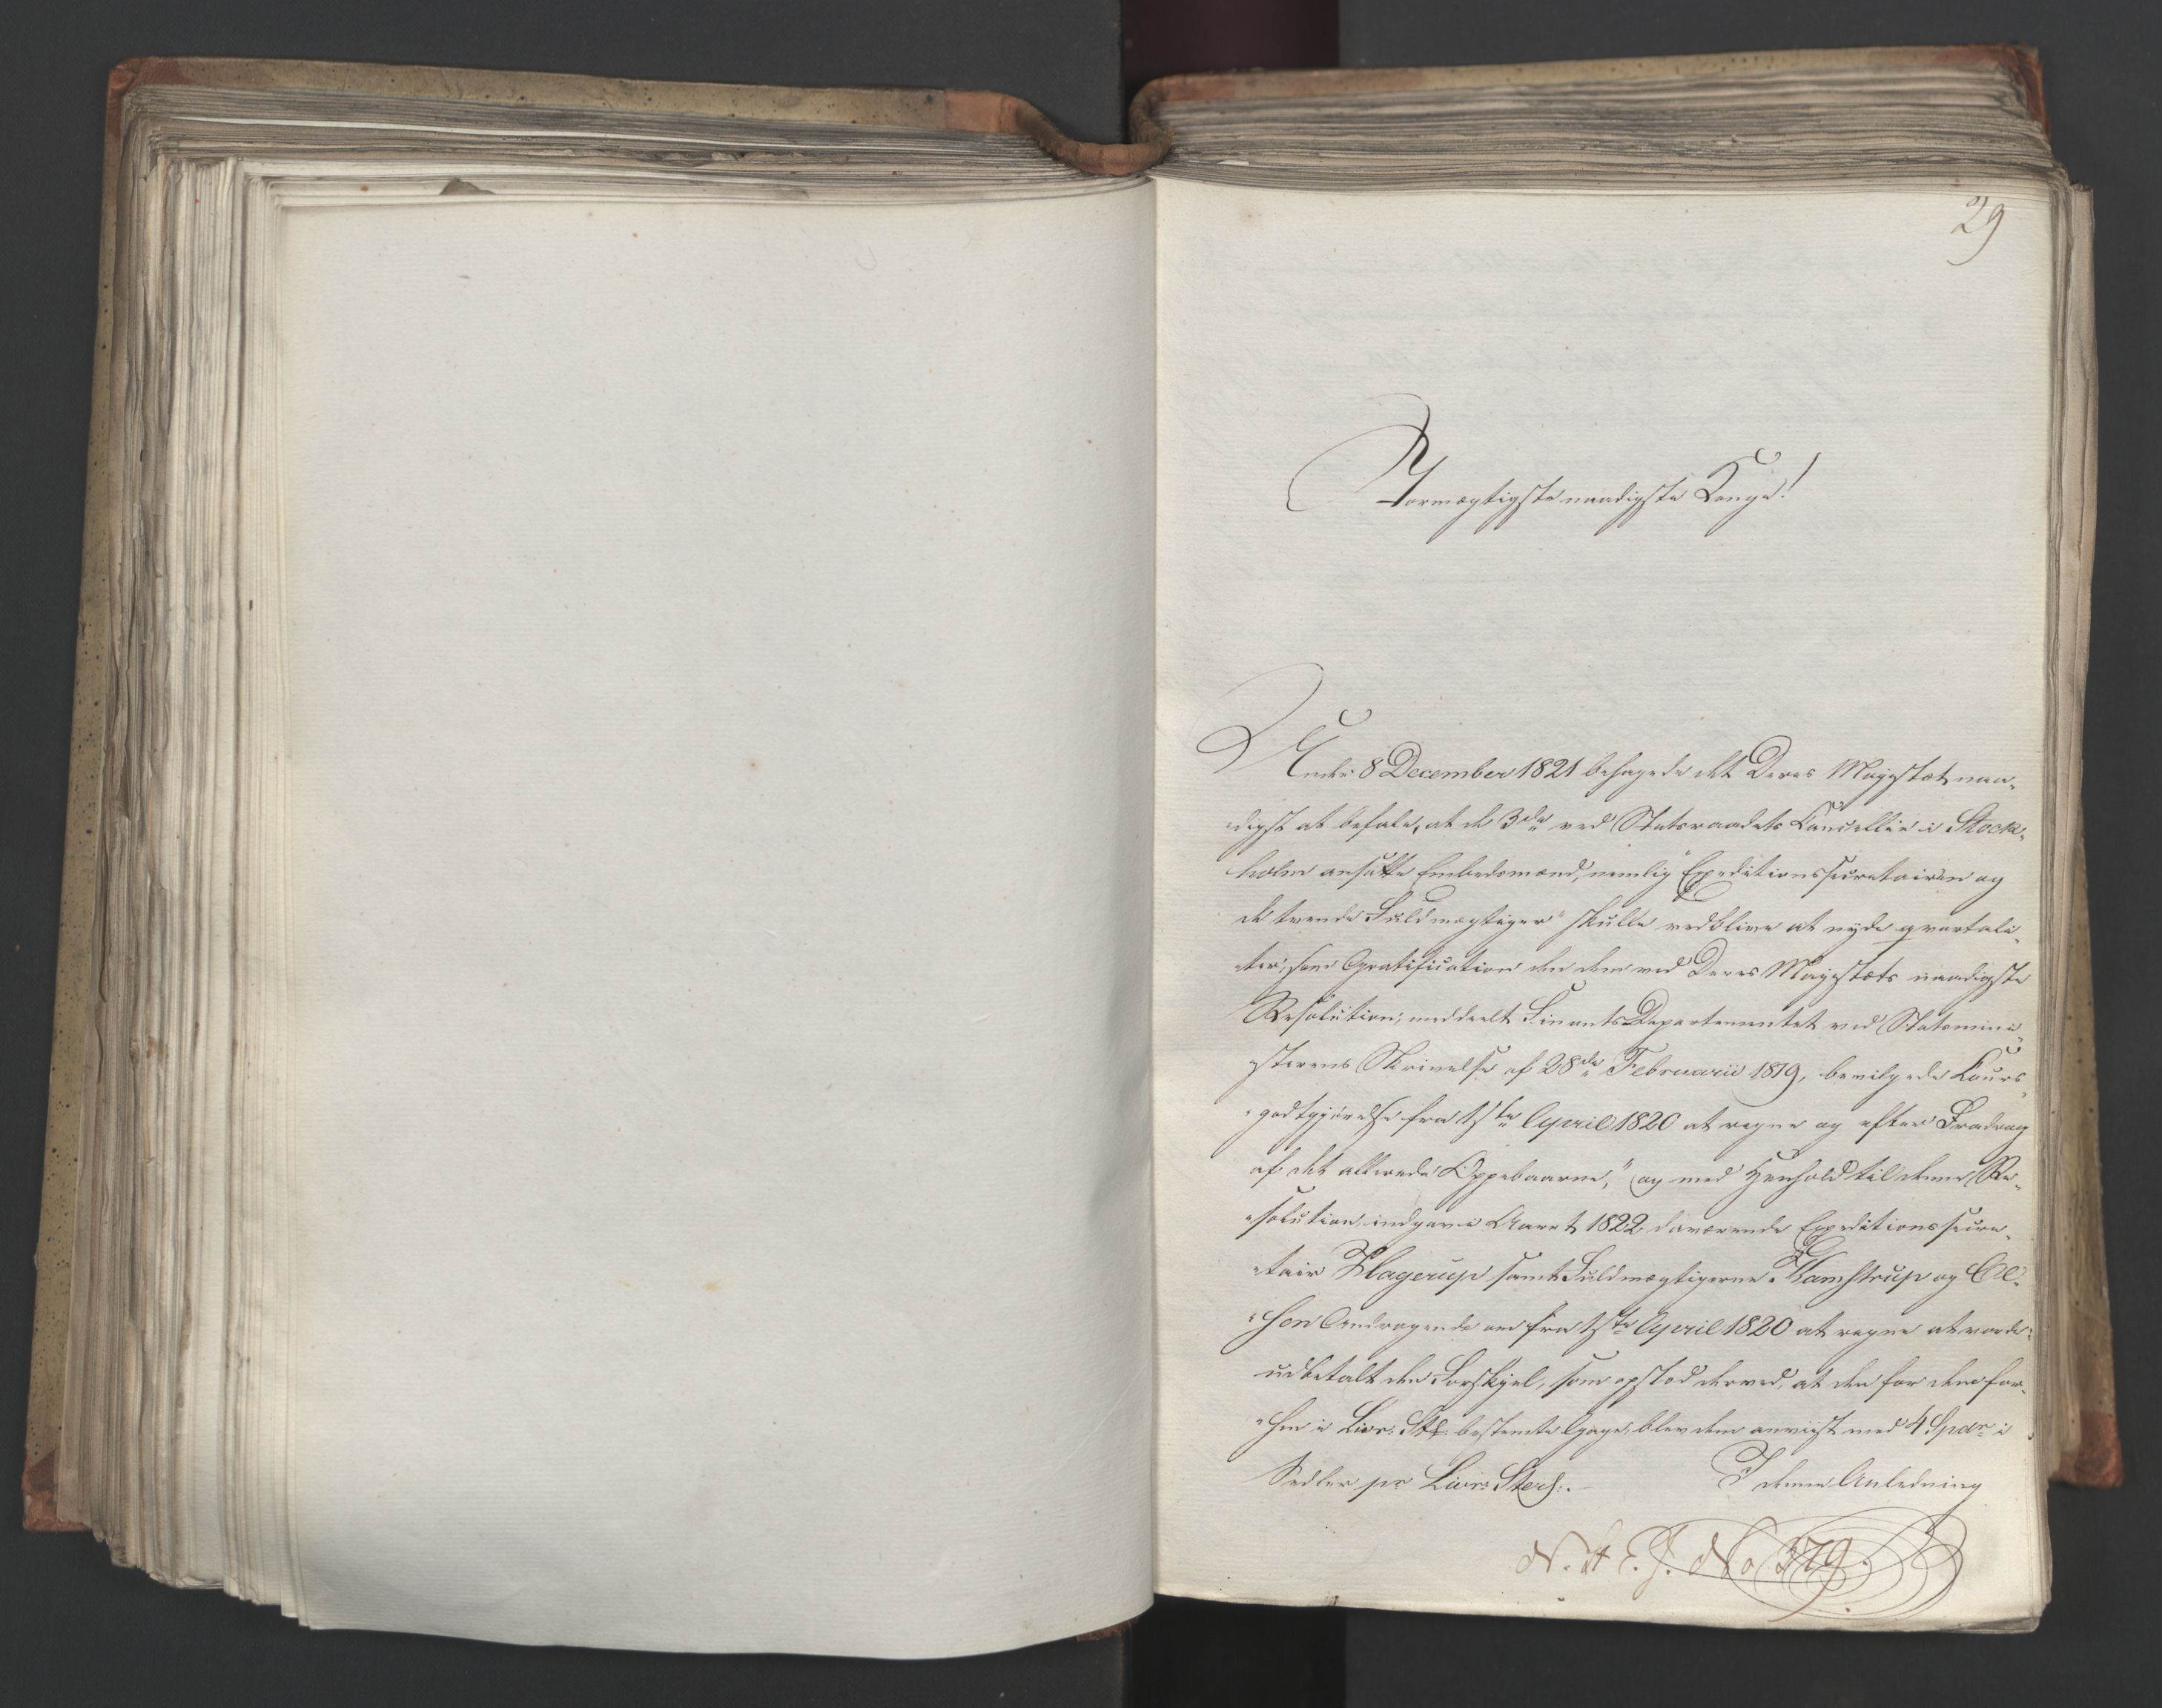 29
Stormægtigste naadigste Konge!
Under 8 December 1821 behagede det Deres Majestæt naa-
digst at befale, at de 3de ved Statsraadets Cancellie i Stock-
holm ansatte Embedsmænd, nemlig "Expeditionssecretairen og
de tvende Fuldmægtiger" skulle vedblive at nyde qvartali-
ter, som Gratification den dem ved Deres Majestæts naadigste
Resolution, meddeelt FinantsDepartementet ved Statsmini-
sterens Skrivelse af 28de Februarii 1819, bevilgede Cours-
godtgjørelse fra 1ste April 1820 at regne og efter Fradrag
af det allerede Oppebaarne," og med Henhold til denne Re-
solution indgav i Aaret 1822 daværende Expeditionssecre-
tair Hagerup samt Fuldmægtigerne Kamstrup og Ol-
sen Andragende om fra 1ste April 1820 at regne at vorde
udbetalt den Forskjel, som opstod derved, at den for dem for-
hen i Livr: Stl: bestemte Gage, blev dem anviist med 4 Spdr i
Sedler pr Livr: Sterl:. I denne Anledning
N. St E. J. No 379.